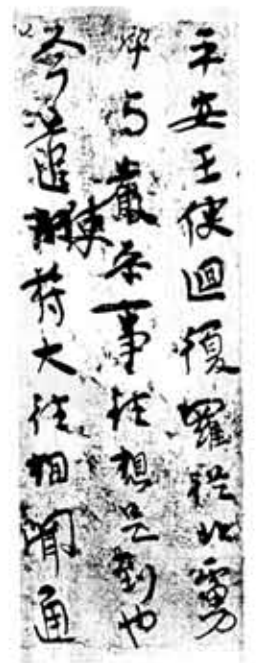 平安王使迴復羅從北虜
中与嚴參事往想是到也
今遣使苻大往相聞通